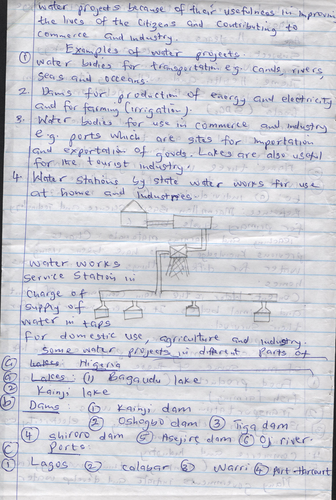 water projects because of their usefulness in improving
the lives of the citizens and contributing to
commerce and industry.
Examples of water projects
1 water bodies for transportation e.g. canals, rivers,
seas and occeans.
2. Dams for production of energy and electricity
and for farming (irrigation).
3. Water bodies for use in commerce and industry
e.g. ports which are sites for importation
and exportation of goods. Lakes are also useful
for the tourist industry.
4. Water stations by state water works for use
at home and industries.
Water works
Service Station in
Charge of
supply of
water in taps
For domestic use, agriculture and industry.
Some water projects in different parts of
Nigeria
a Lakes: (1) Bagaudu lake
2 Kainji lake
b Dams (1) Kainji dam
(2) Oshogbo dam (3) Tiga dam
(4) shiroro dam (5) Asejire dam (6) Oj river.
C Ports
(1) Lagos (2) calabar (3) Warri (4) Port-harcourt